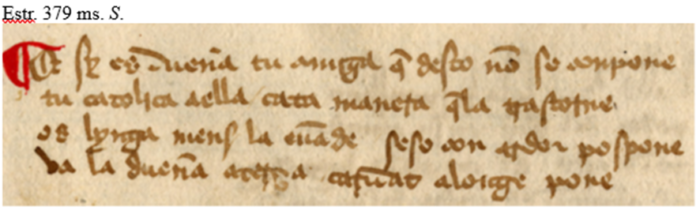 Estr. 379 ms. S.
E sy es dueña tu amiga q̃ desto nõ se conpone
tu catolica aella cata manera q̃la trastorne
os lynga mens la euãde seso con ardor pospone
va la dueña aterçia caridat alonge pone